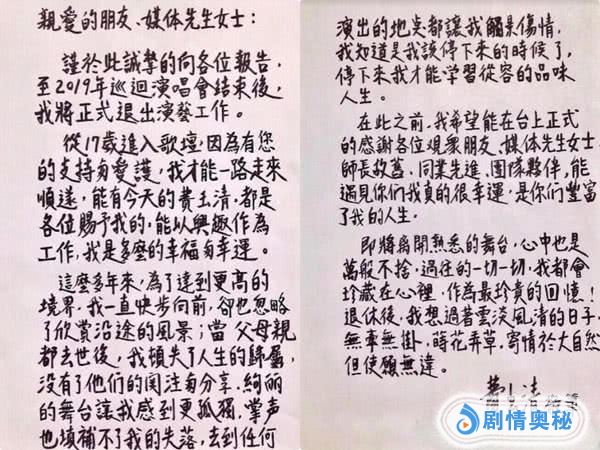 親愛的朋友、媒体先生女士：
謹於此誠摯的向各位報告，
至2019年巡迴演唱會結束後，
我將正式退出演藝工作。
從17歲進入歌壇，因為有您
的支持與愛護，我才能一路走來
順遂，能有今天的費玉清，都是
各位賜予我的，能以興趣作為
工作，我是多麼的幸福與幸運。
這麼多年來，為了達到更高的
境界，我一直快步向前，卻也忽略
了欣賞沿途的風景；當父母親
都去世後，我頓失了人生的歸屬，
沒有了他們的関注與分享，絢麗
的舞台讓我感到更孤獨，掌声
也填補不了我的失落，去到任何
演出的地点都讓我觸景傷情，
我知道是我該停下來的時候了，
停下來我才能学習從容的品味
人生。
在此之前，我希望能在台上正式
的感謝各位觀衆朋友、媒体先生女士、
師長故舊、同業先進、團隊夥伴，能
遇見你们我真的很幸運，是你们豐富
了我的人生。
即將离開熟悉的舞台，心中也是
萬般不捨，過往的一切一切，我都會
珍藏在心裡，作為最珍貴的回憶！
退休後，我想過著雲淡風清的日子，
無牽無掛，蒔花弄草，寄情於大自然
但使願無違。
剧情奥秘